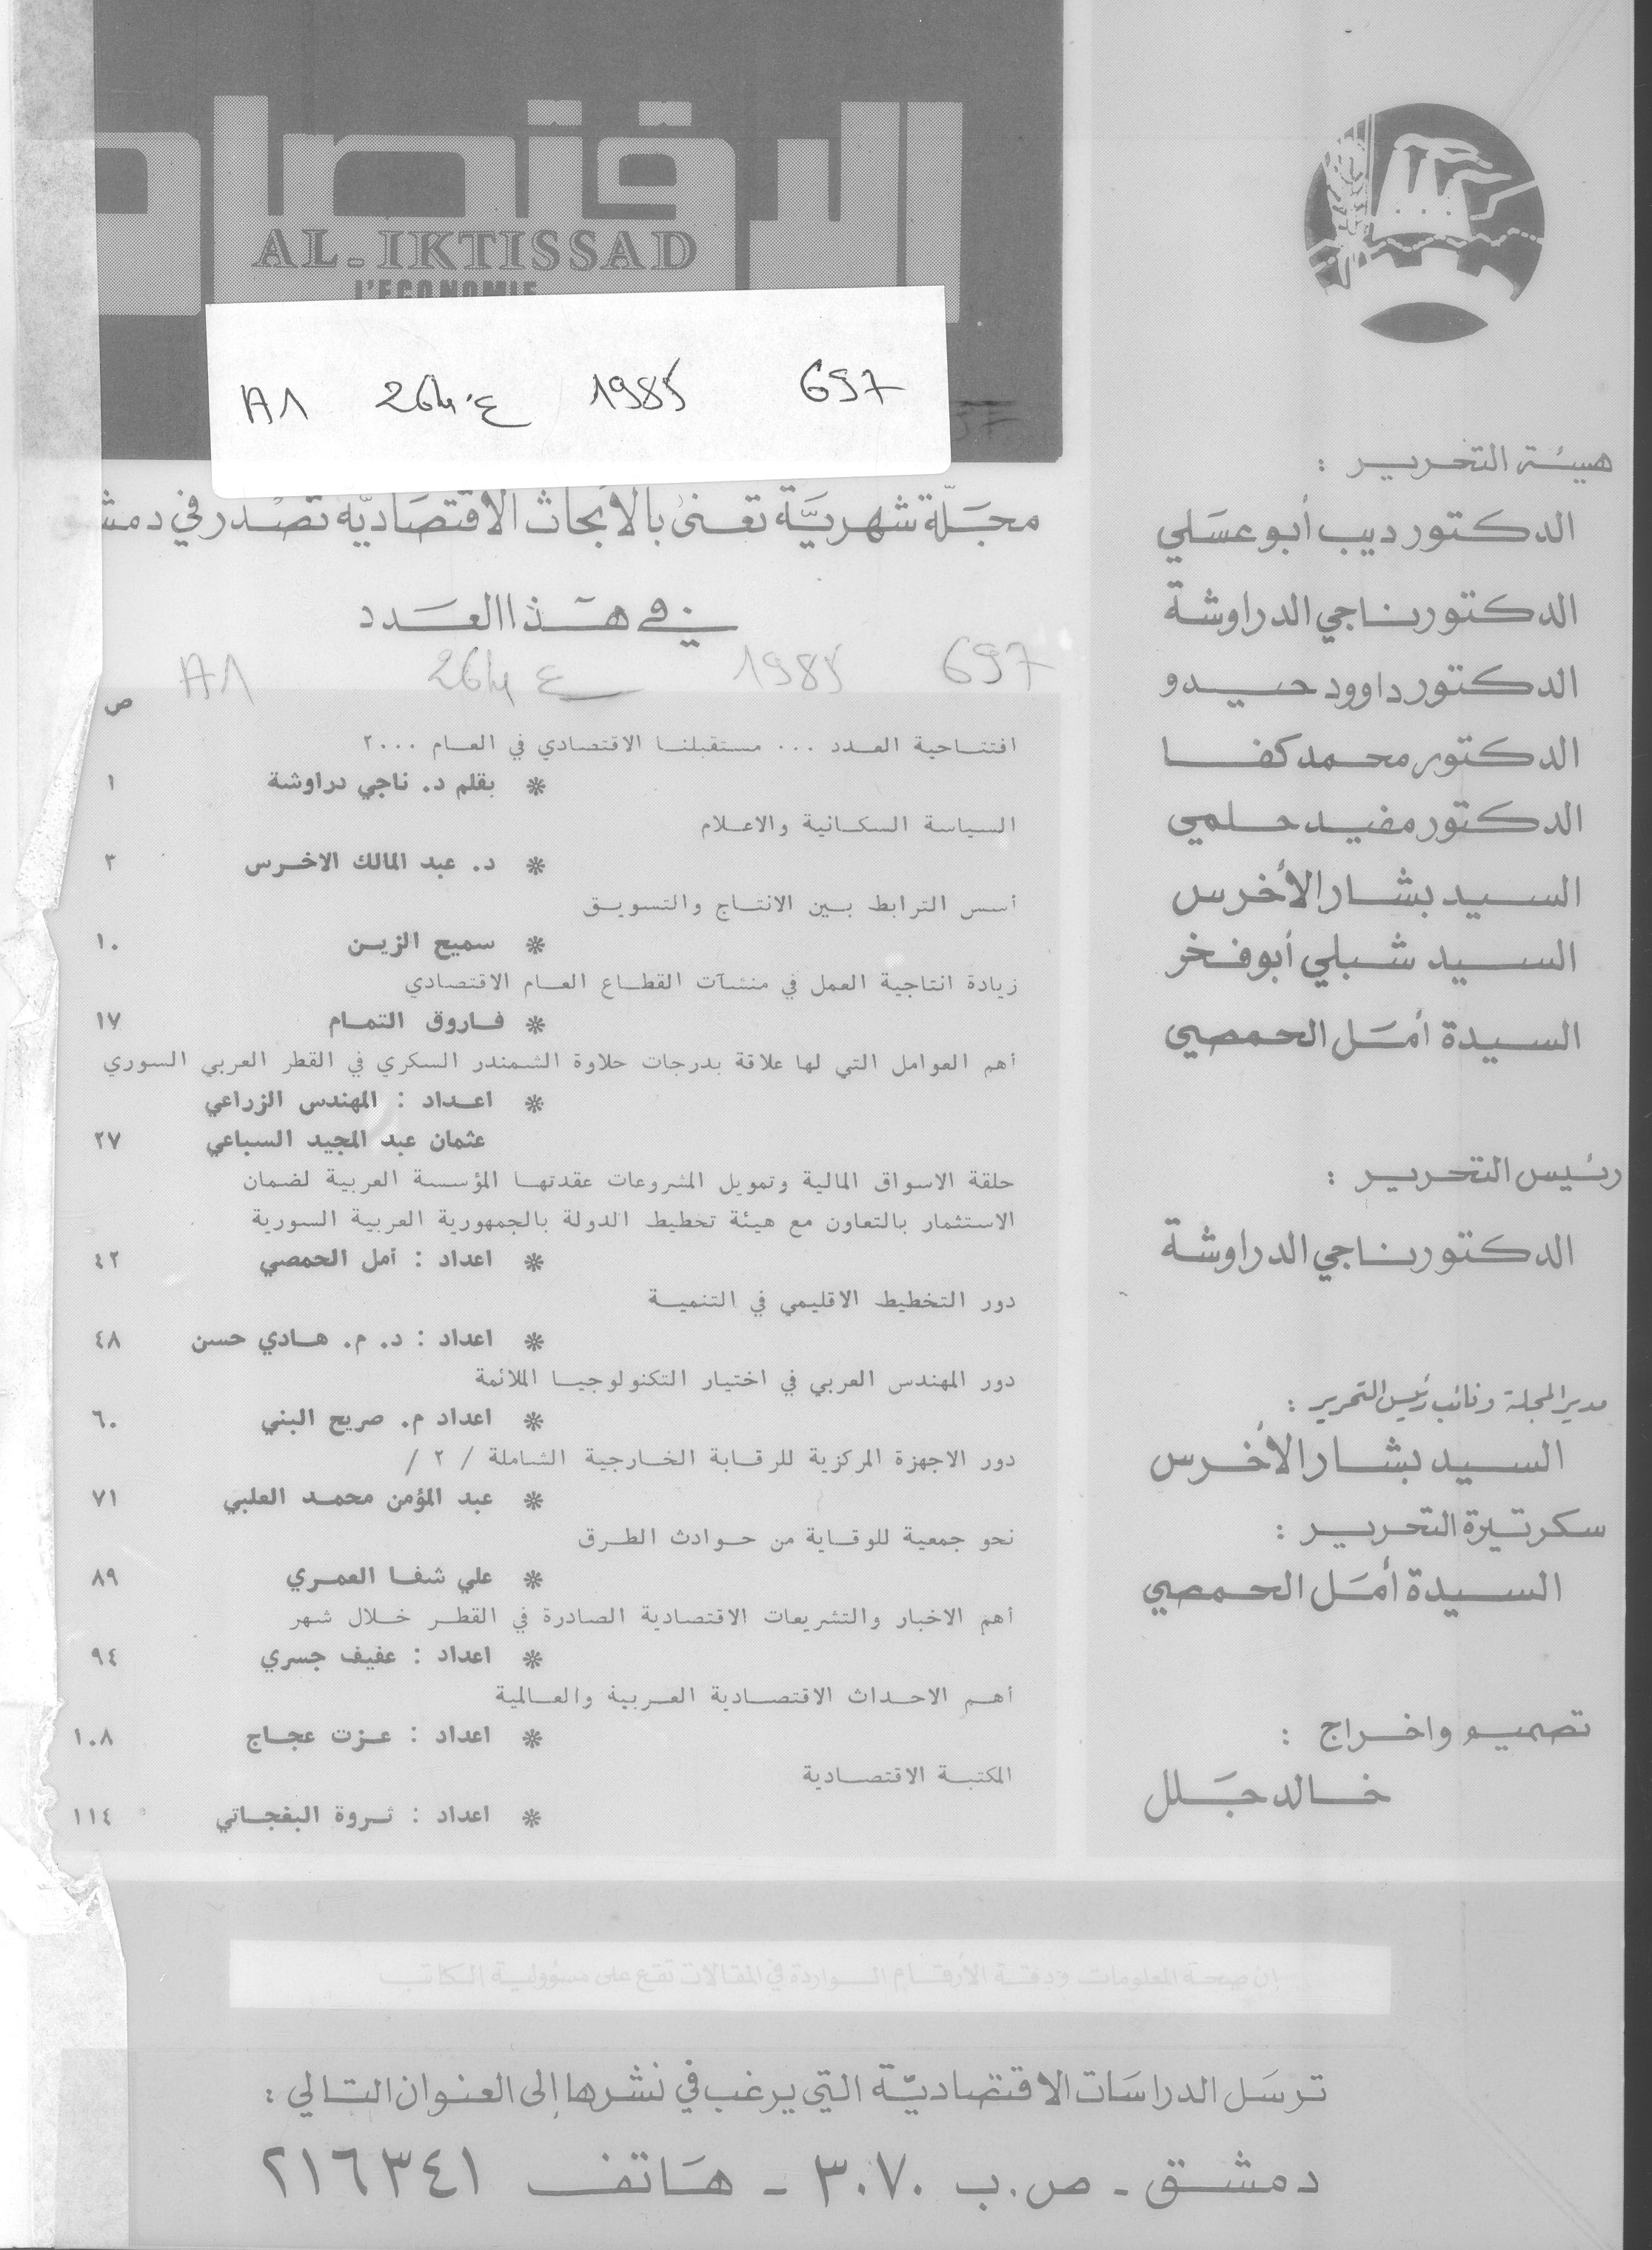 هيئة التحرير :
الدكتور ديب أبو عسلي
الدكتور ناجي الدراوشة
الدكتور داوود حيدو
الدكتور محمد كفا
الدكتور مفيد حلمي
السيد بشار الأخرس
السيد شبلي أبو فخر
السيدة أمل الحمصي
رئيس التحرير :
الدكتور ناجي الدراوشة
مدير المجلة ونائب رئيس التحرير :
السيد بشار الأخرس
سكرتيرة التحرير :
السيدة أمل الحمصي
تصميم واخراج :
خالد جلل
الاقتصاد
AL-IKTISSAD
l'ECONOMIE
A٨ 264 ع 1985 697
مجلة شهرية تعنى بالأبحاث الاقتصادية تصدر في
في هذا العدد
A٨ 264 ع 1985 697
ص
افتتاحية العدد ... مستقبلنا الاقتصادي في العام ٢٠٠٠
* بقلم د. ناجي دراوشة ١
السياسة السكانية والاعلام
* د. عبد المالك الاخرس ٣
أسس الترابط بين الانتاج والتسويق
* سميح الزين ١٠
زيادة انتاجية العمل في منشآت القطاع العام الاقتصادي
* فاروق التمام ١٧
أهم العوامل التي لها علاقة بدرجات حلاوة الشمندر السكري في القطر العربي السوري
* اعداد : المهندس الزراعي
عثمان عبد المجيد السباعي ٢٧
حلقة الاسواق المالية وتمويل المشروعات عقدتها المؤسسة العربية لضمان
الاستثمار بالتعاون مع هيئة تخطيط الدولة بالجمهورية العربية السورية
* اعداد : أمل الحمصي ٤٢
دور التخطيط الاقليمي في التنمية
* اعداد : د. م. هادي حسن ٤٨
دور المهندس العربي في اختيار التكنولوجيا الملائمة
* اعداد م. صريح البني ٦٠
دور الاجهزة المركزية للرقابة الخارجية الشاملة / ٢ /
* عبد المؤمن محمد العلبي ٧١
نحو جمعية للوقاية من حوادث الطرق
* علي شفا العمري ٨٩
أهم الاخبار والتشريعات الاقتصادية الصادرة في القطر خلال شهر
* اعداد : عفيف جسري ٩٤
أهم الاحداث الاقتصادية العربية والعالمية
* اعداد : عزت عجاج ١٠٨
المكتبة الاقتصادية
* اعداد : ثروة البفجاتي ١١٤
إن صحة المعلومات ودقة الأرقام الواردة في المقالات تقع على مسؤولية الكاتب
ترسل الدراسات الاقتصادية التي يرغب في نشرها إلى العنوان التالي :
دمشق - ص.ب ٣٠٧٠ - هاتف ٢١٦٣٤١